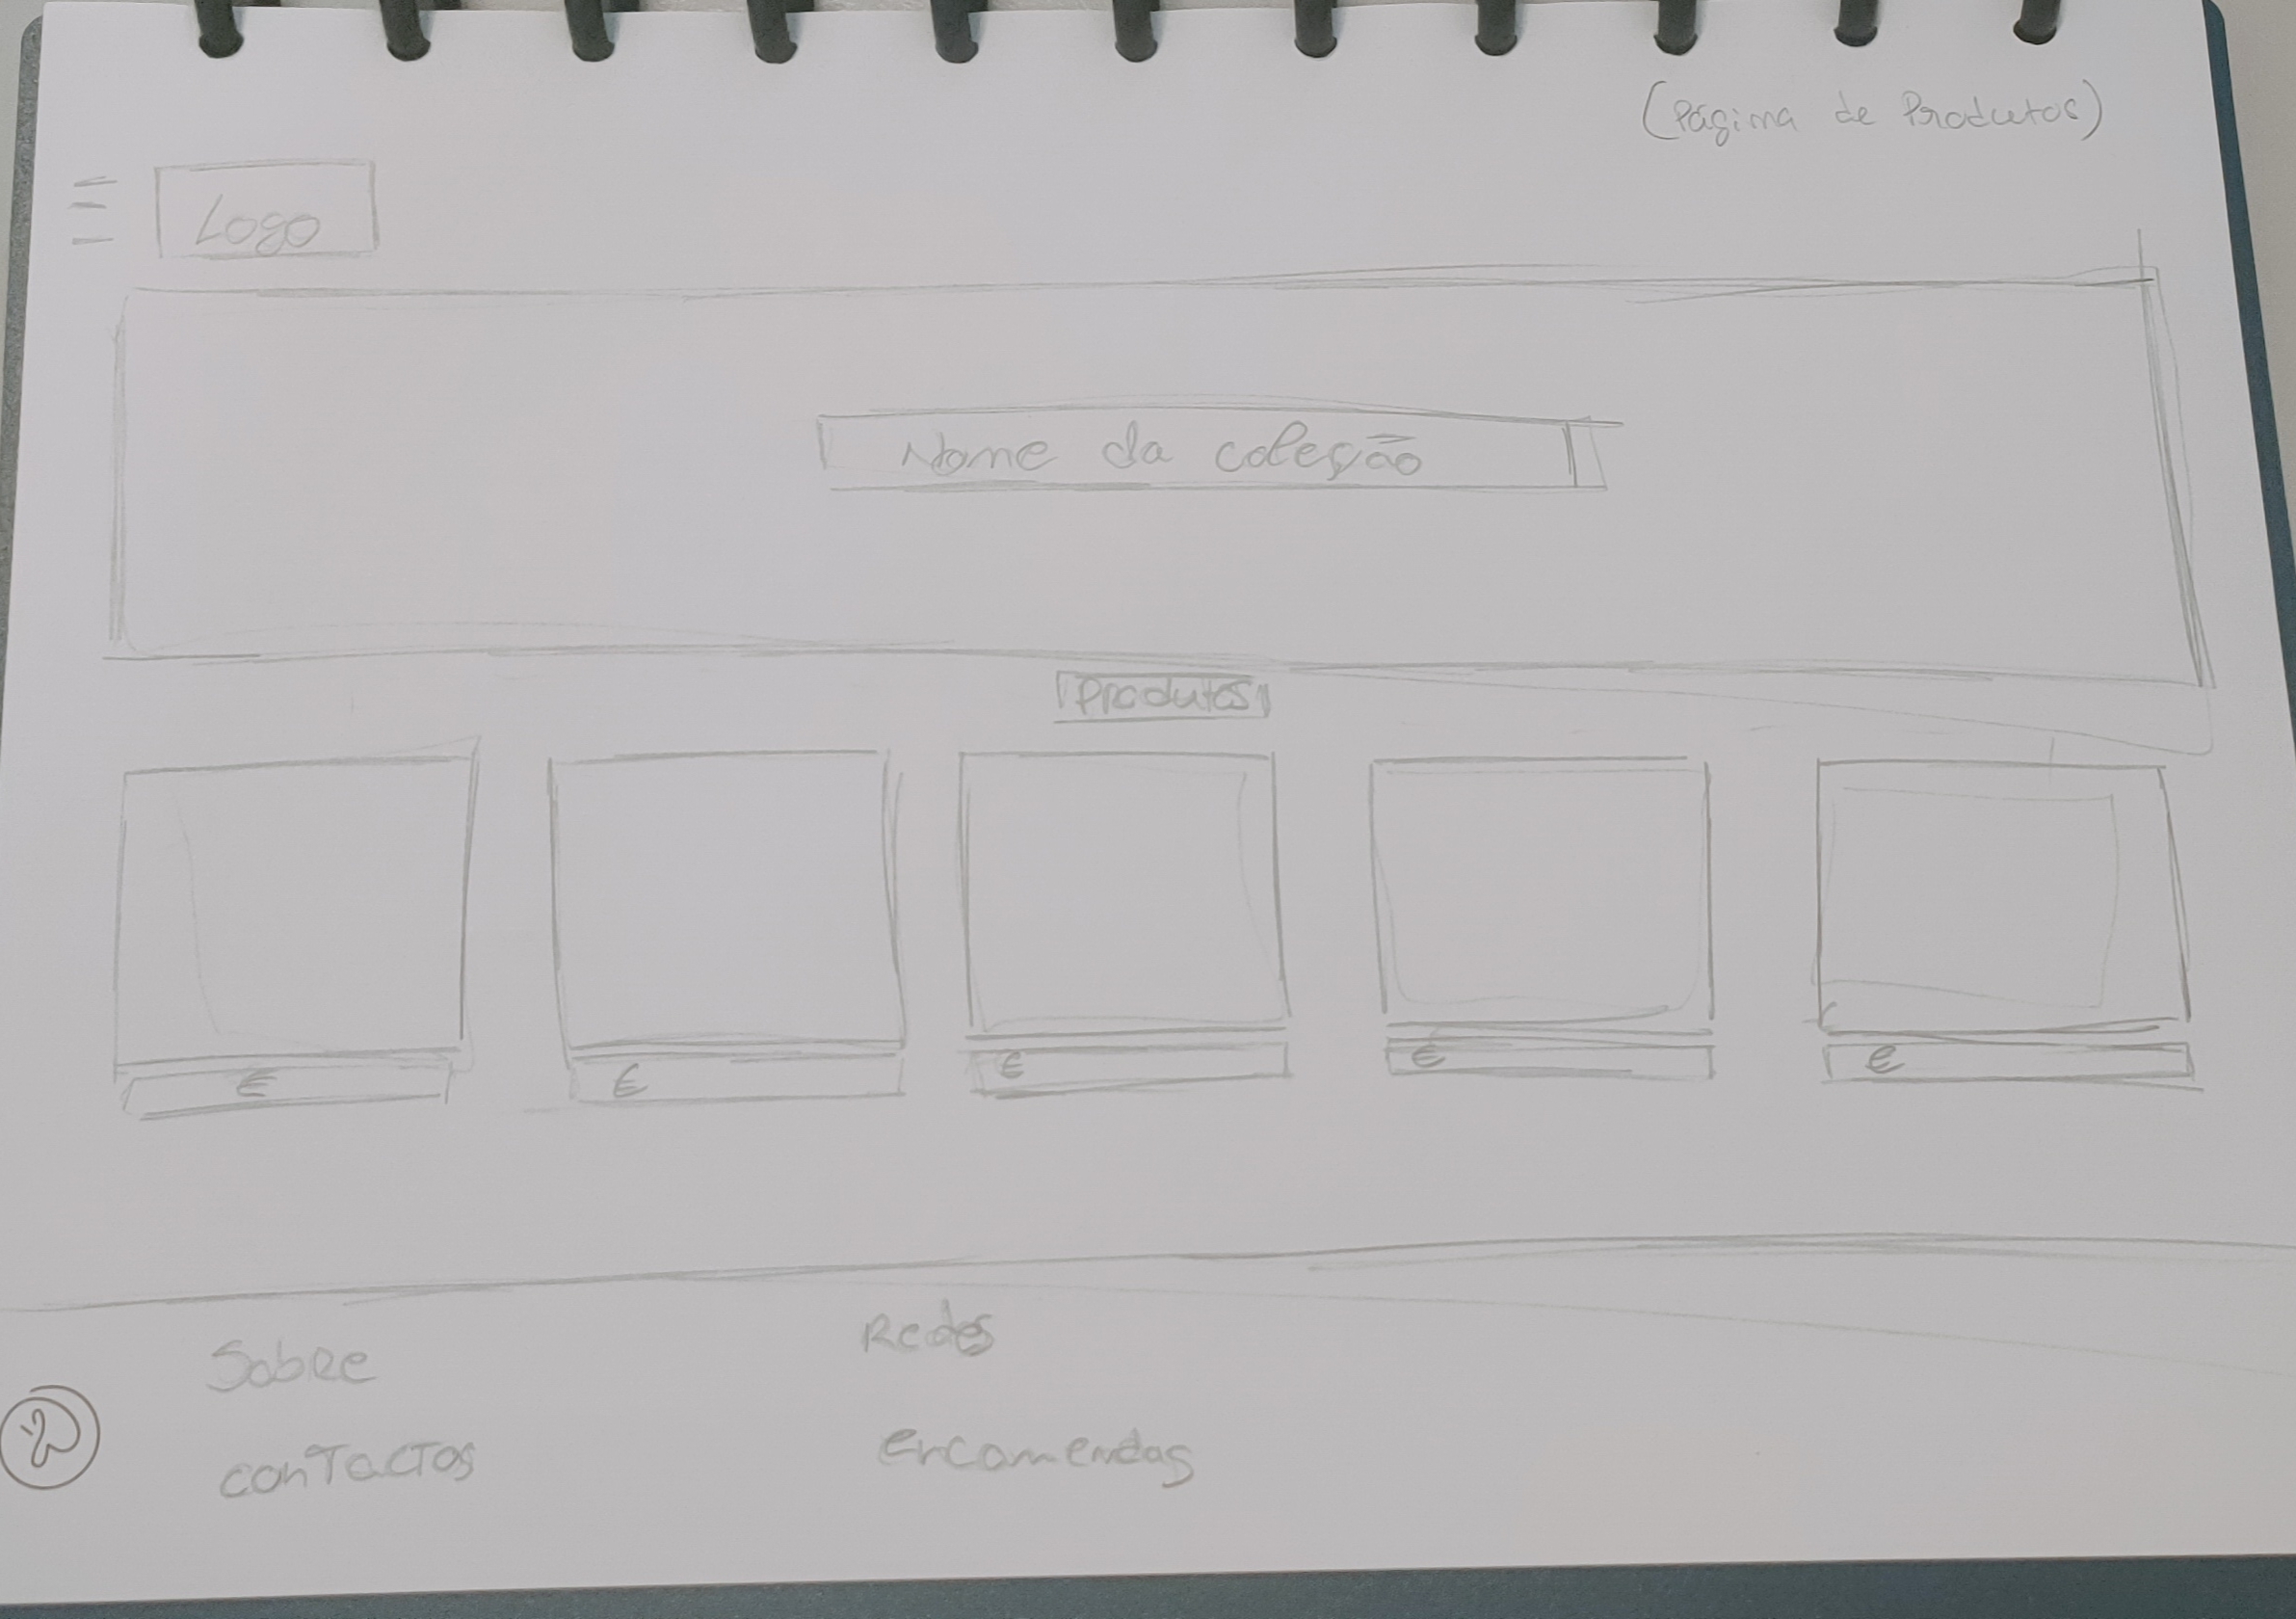 (Página de Produtos)
Logo
Nome da coleção
Produtos
€ € € € €
Sobre Redes
contactos encomendas